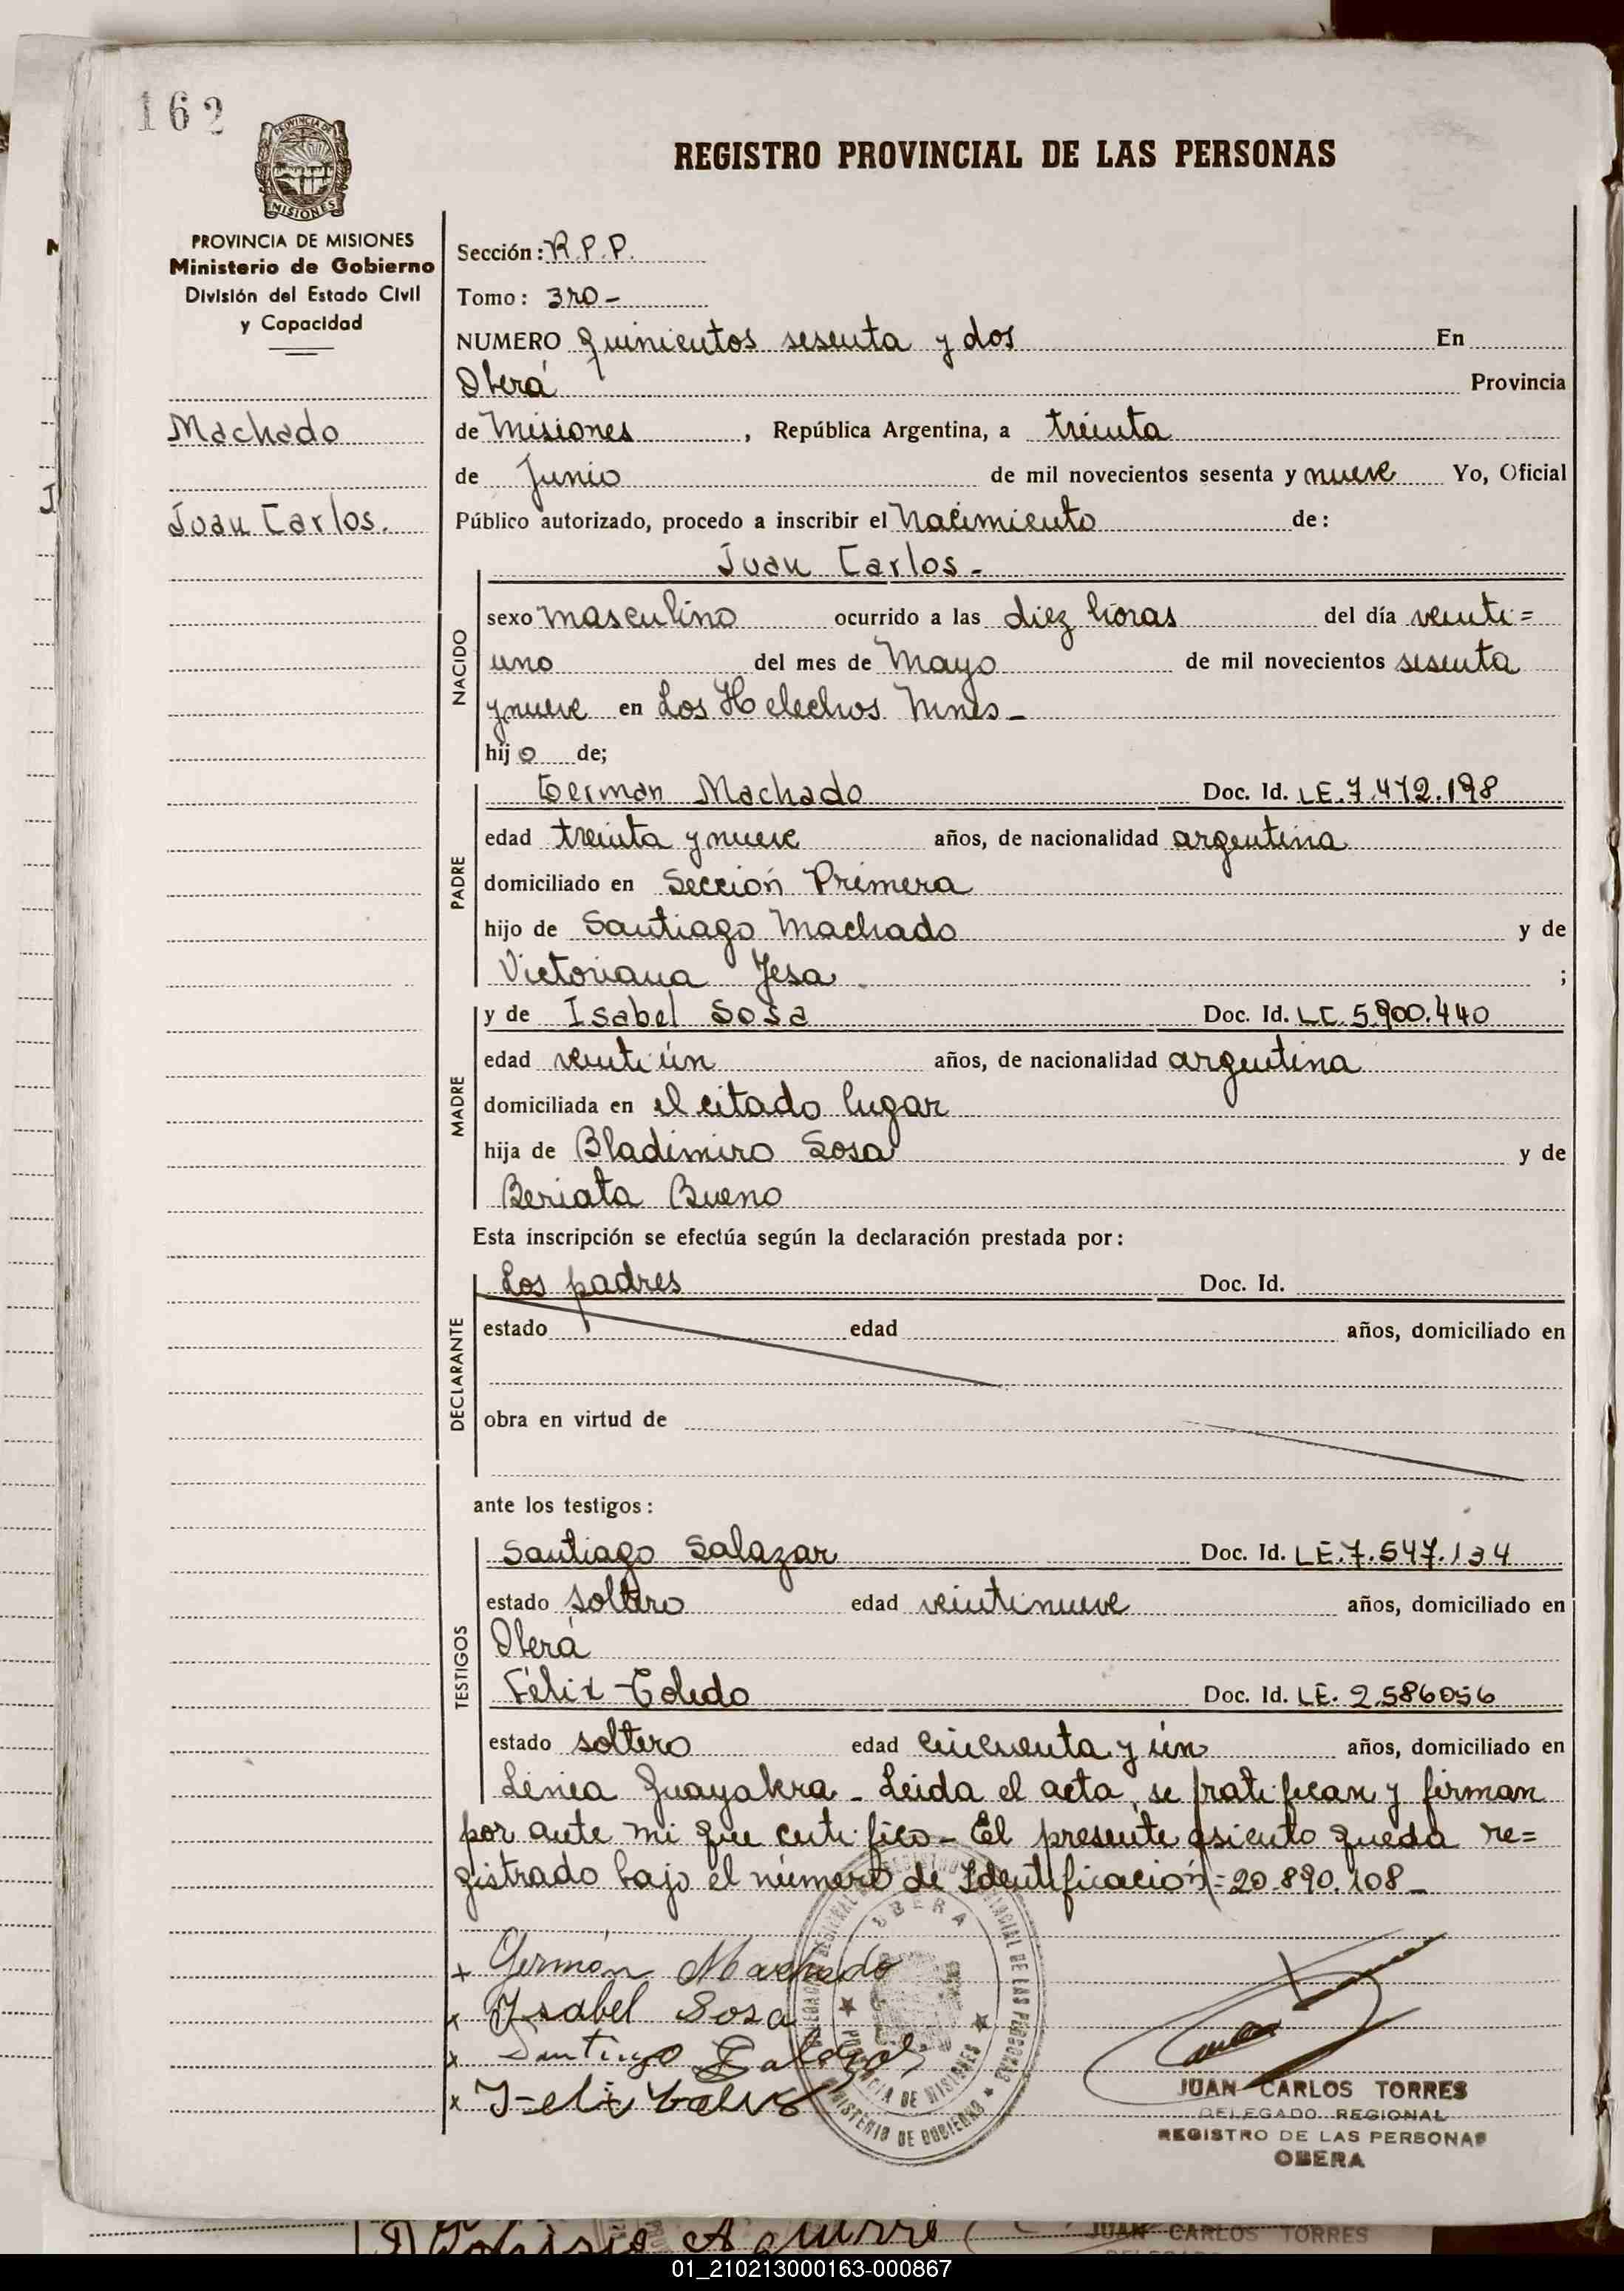 162
PROVINCIA DE
MISIONES
REGISTRO PROVINCIAL DE LAS PERSONAS
PROVINCIA DE MISIONES
Ministerio de Gobierno
División del Estado Civil
y Capacidad
Machado
Juan Carlos.
Sección: R.P.P.
Tomo: 3ro-
NUMERO Quinientos sesenta y dos En
Oberá Provincia
de Misiones, República Argentina, a treinta
de Junio de mil novecientos sesenta y nueve Yo, Oficial
Público autorizado, procedo a inscribir el Nacimiento de:
Juan Carlos-
NACIDO
sexo masculino ocurrido a las diez horas del día veinti=
uno del mes de Mayo de mil novecientos sesenta
y nueve en Los Helechos Mnes-
hijo de;
PADRE
German Machado Doc. Id. LE.7.472.198
edad treinta y nueve años, de nacionalidad argentina
domiciliado en Sección Primera
hijo de Santiago Machado y de
Victoriana Jesa ;
MADRE
y de Isabel Sosa Doc. Id. LC.5.900.440
edad veintiún años, de nacionalidad argentina
domiciliada en el citado lugar
hija de Bladimiro Sosa y de
Beriata Bueno
Esta inscripción se efectúa según la declaración prestada por:
DECLARANTE
Los padres Doc. Id.
estado edad años, domiciliado en
obra en virtud de
ante los testigos:
TESTIGOS
Santiago Salazar Doc. Id. LE.7.547.134
estado soltero edad veintinueve años, domiciliado en
Oberá
Félix Toledo Doc. Id. LE. 2.586056
estado soltero edad cincuenta y ún años, domiciliado en
Linea Guayakra - Leida el acta, se ratifican y firman
por ante mi que certifico - El presente asiento queda re=
gistrado bajo el número de Identificación: 20.890.108-
x Germán Machado
x Isabel Sosa
x Santiago
x Felix
OBERA
PROVINCIA DE MISIONES
MINISTERIO DE GOBIERNO
JUAN CARLOS TORRES
DELEGADO REGIONAL
REGISTRO DE LAS PERSONAS
OBERA
JUAN CARLOS TORRES
01_210213000163-000867